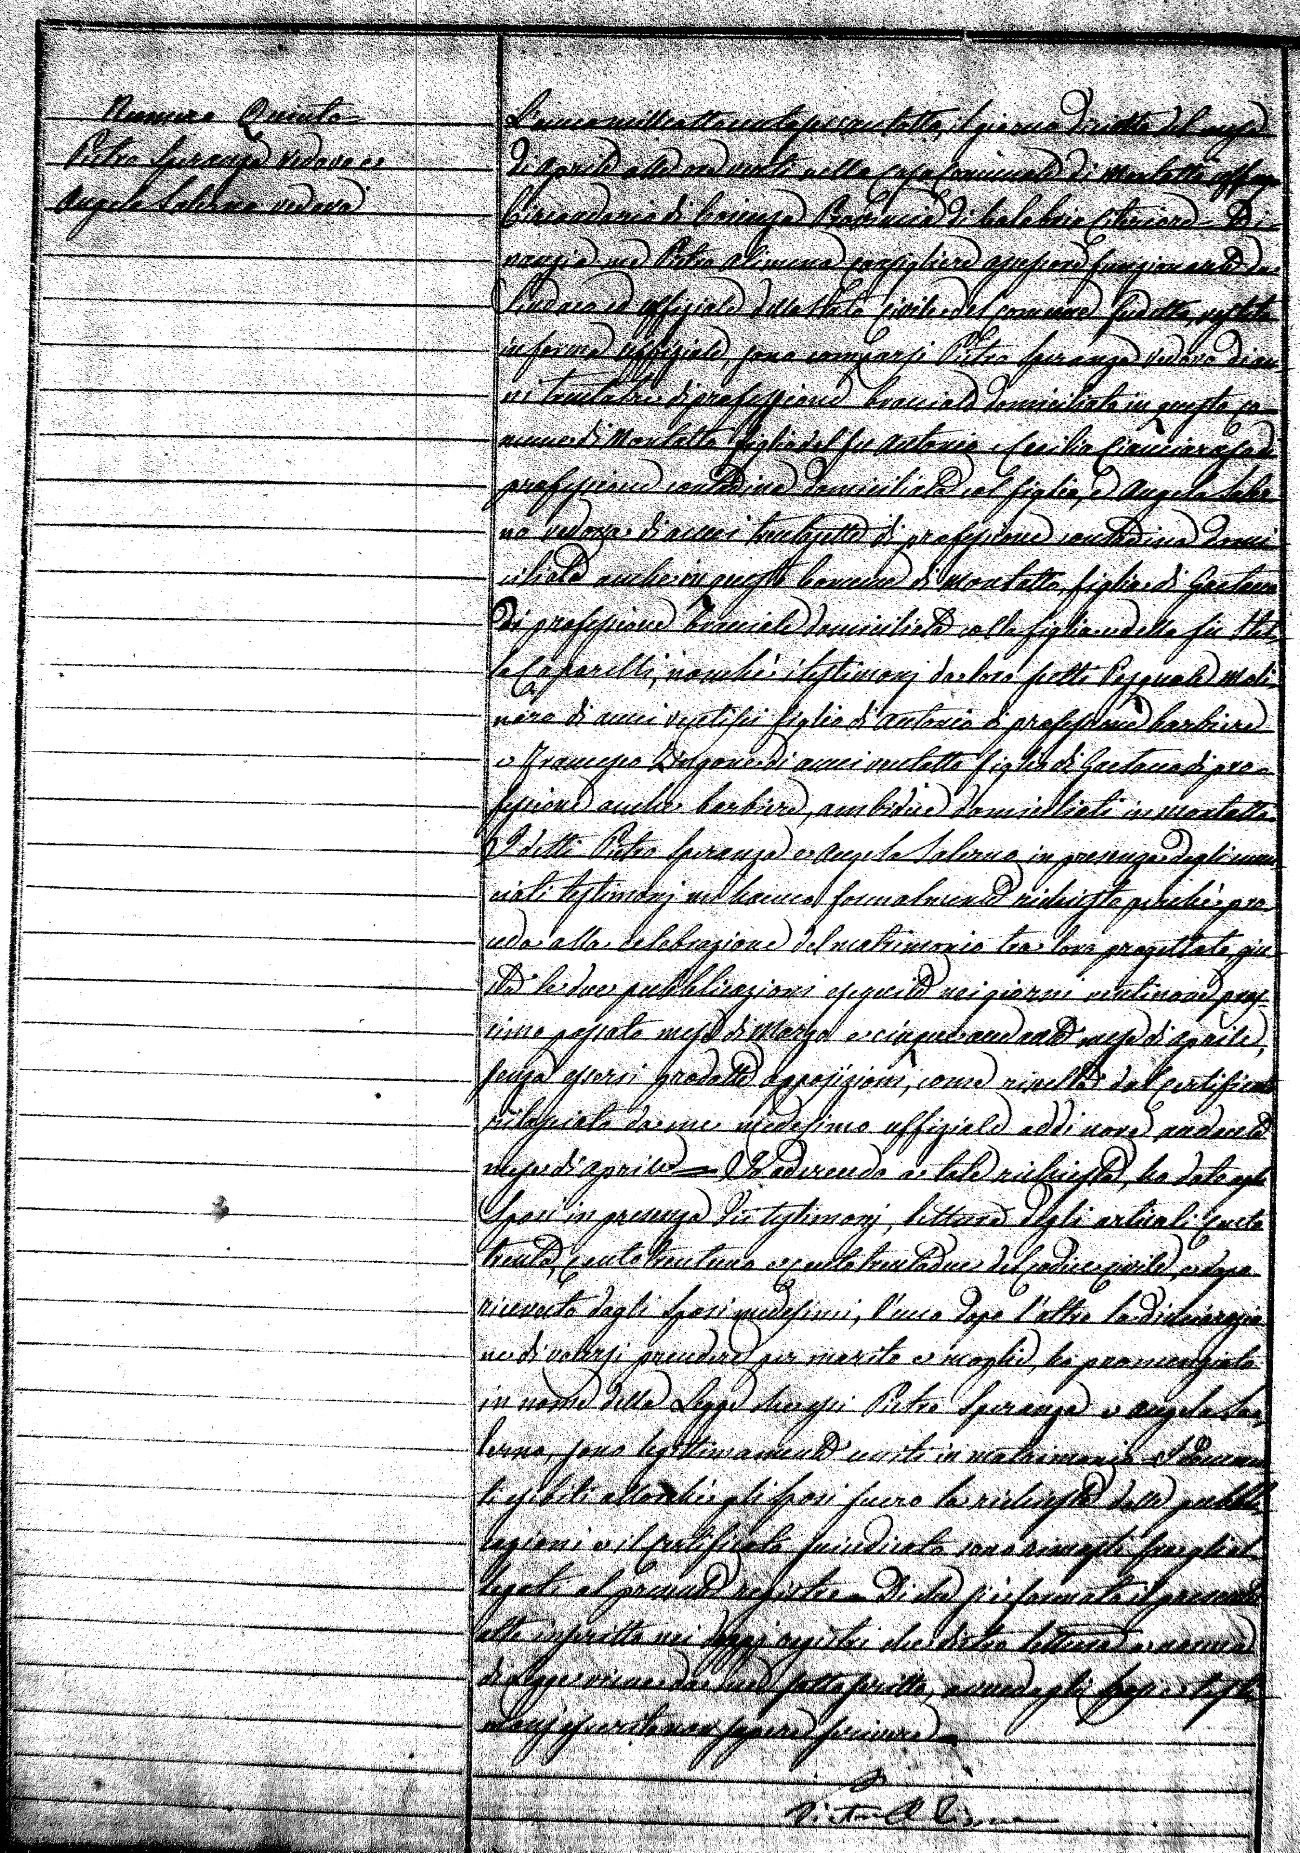 Numero Quinto
Pietro Speranza vedovo e
Angela Salerno vedova
L'anno mille ottocento sessantotto, il giorno diciotto del mese
di Aprile alle ore venti nella Casa Comunale di Montalto Uffugo
Circondario di Cosenza Provincia di Calabria Citeriore - Di-
nanzi a me Pietro Alimena consigliere assessore funzionante da
Sindaco ed uffiziale dello Stato Civile del comune sudetto, vestito
in forma uffiziale, sono comparsi Pietro Speranza vedovo di an-
ni trentatre di professione bracciale domiciliato in questo co-
mune di Montalto figlio del fu Antonio e Cecilia di
professione contadina domiciliata col figlio, e Angela Saler-
no vedova di anni trentasette di professione contadina domi-
ciliata anche in questo comune di Montalto, figlia di Gaetano
di professione bracciale domiciliato colla figlia e della fu
Caparelli, nonché i testimonj da loro scelti Pasquale Moli-
naro di anni ventisei figlio di Antonio di professione barbiere
e Francesco di anni ventotto figlio di Gaetano di pro-
fessione anche barbiere, ambidue domiciliati in Montalto
I detti Pietro Speranza e Angela Salerno in presenza degli enun-
ciati testimonj mi hanno formalmente richiesto perché pro-
ceda alla celebrazione del matrimonio tra loro progettato, giu-
sta le due pubblicazioni eseguite nei giorni ventinove pros-
simo passato mese di Marzo e cinque andante mese di aprile,
senza essersi prodotte opposizioni, come risulta dal certificato
rilasciato da me medesimo uffiziale addi nove andante
mese di aprile - Io aderendo a tale richiesta, ho dato agli
Sposi in presenza dei testimonj, lettura degli articoli cento
trenta, cento trentuno e cento trentadue del Codice civile, e dopo
ricevuto dagli Sposi medesimi, l'uno dopo l'altro la dichiarazio
ne di volersi prendere per marito e moglie, ho pronunziato
in nome della Legge che essi Pietro Speranza e Angela Sa-
lerno, sono legittimamente uniti in matrimonio - I documen-
ti esibiti allorché gli sposi fecero la richiesta delle pubbli-
cazioni e il certificato suindicato sono rimasti
legati al presente registro - Di che si è formato il presente
atto inscritto nei doppj registri che dietro lettura a norma
di legge viene da me sottoscritto, avendo gli sposi e testi-
monj asserito non sapere scrivere -
Pietro Alimena